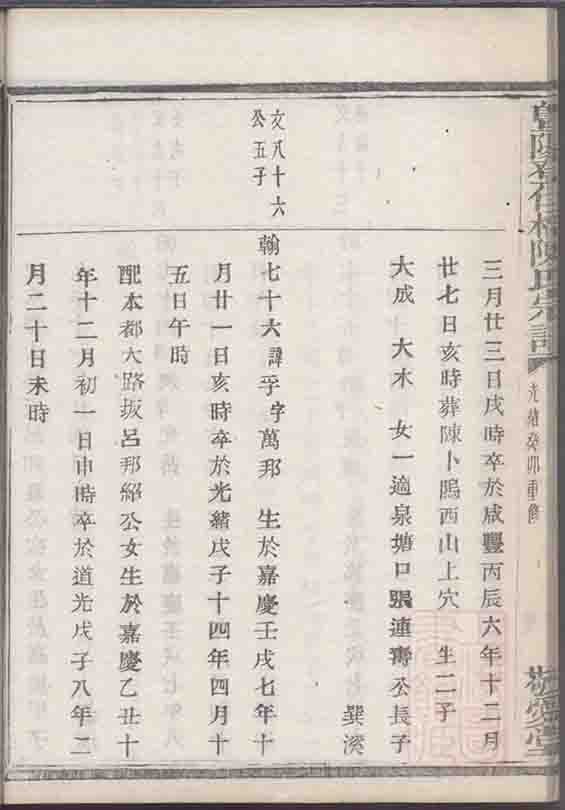 陳氏宗譜
光緒癸卯重修
敬愛堂
三月廿三日戌時卒於咸豐丙辰六年十二月
廿七日亥時葬陳卜鳴西山上穴 生二子
大成 大木 女一適泉塘口張連壽公長子
巽溪
文八十六
公五子
翰七十六諱孚字萬邦 生於嘉慶壬戌七年十
月廿一日亥時卒於光緒戊子十四年四月十
五日午時
配本都大路坂呂邦紹公女生於嘉慶乙丑十
年十二月初一日申時卒於道光戊子八年二
月二十日未時